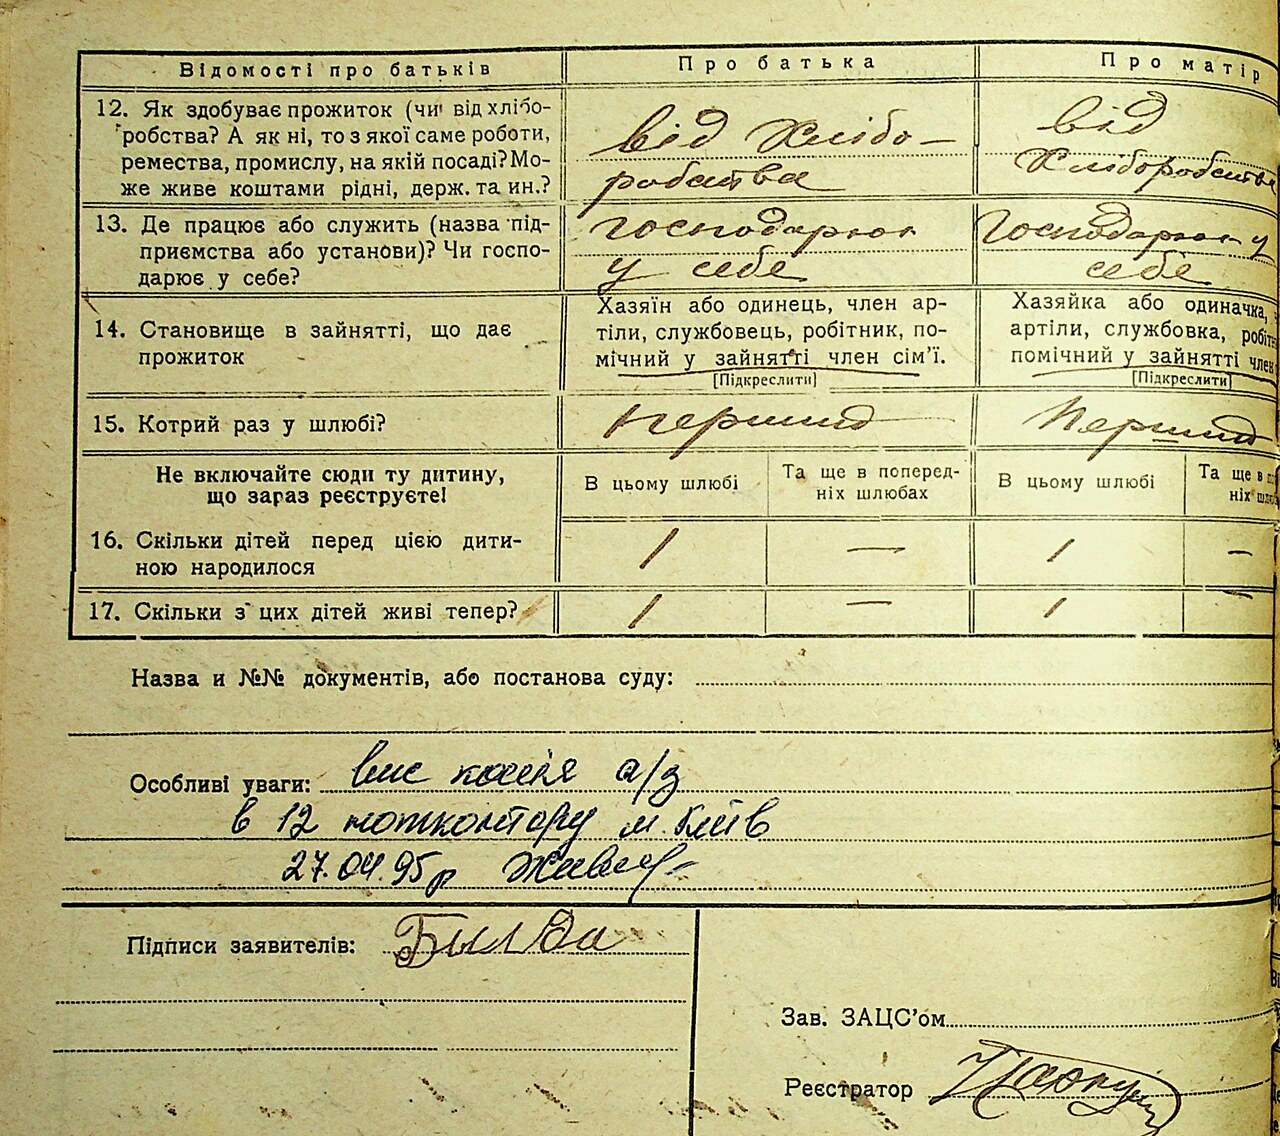 Відомості про батьків Про батька Про матір
12. Як здобуває прожиток (чи від хлібо-
робства? А як ні, то з якої саме роботи,
ремества, промислу, на якій посаді? Мо-
же живе коштами рідні, держ. та ин.?
від Хлібо-
робства
від
Хліборобства
13. Де працює або служить (назва під-
приємства або установи)? Чи госпо-
дарює у себе?
господарює
у себе
Господарює у
себе
14. Становище в зайнятті, що дає
прожиток
Хазяїн або одинець, член ар-
тіли, службовець, робітник, по-
мічний у зайнятті член сім'ї.
[Підкреслити]
Хазяйка або одиначка,
артіли, службовка, робітн
помічний у зайнятті член
[Підкреслити]
15. Котрий раз у шлюбі?
перший Перший
Не включайте сюди ту дитину,
що зараз реєструєте!
В цьому шлюбі
Та ще в поперед-
ніх шлюбах
В цьому шлюбі
Та ще в по
ніх шлю
16. Скільки дітей перед цією дити-
ною народилося
1 — 1 —
17. Скільки з цих дітей живі тепер? 1 — 1 —
Назва и №№ документів, або постанова суду:
Особливі уваги: вис копія а/з
в 12 нотконтору м. Київ
27.04.95р
Підписи заявителів:
Зав. ЗАЦС'ом
Реєстратор